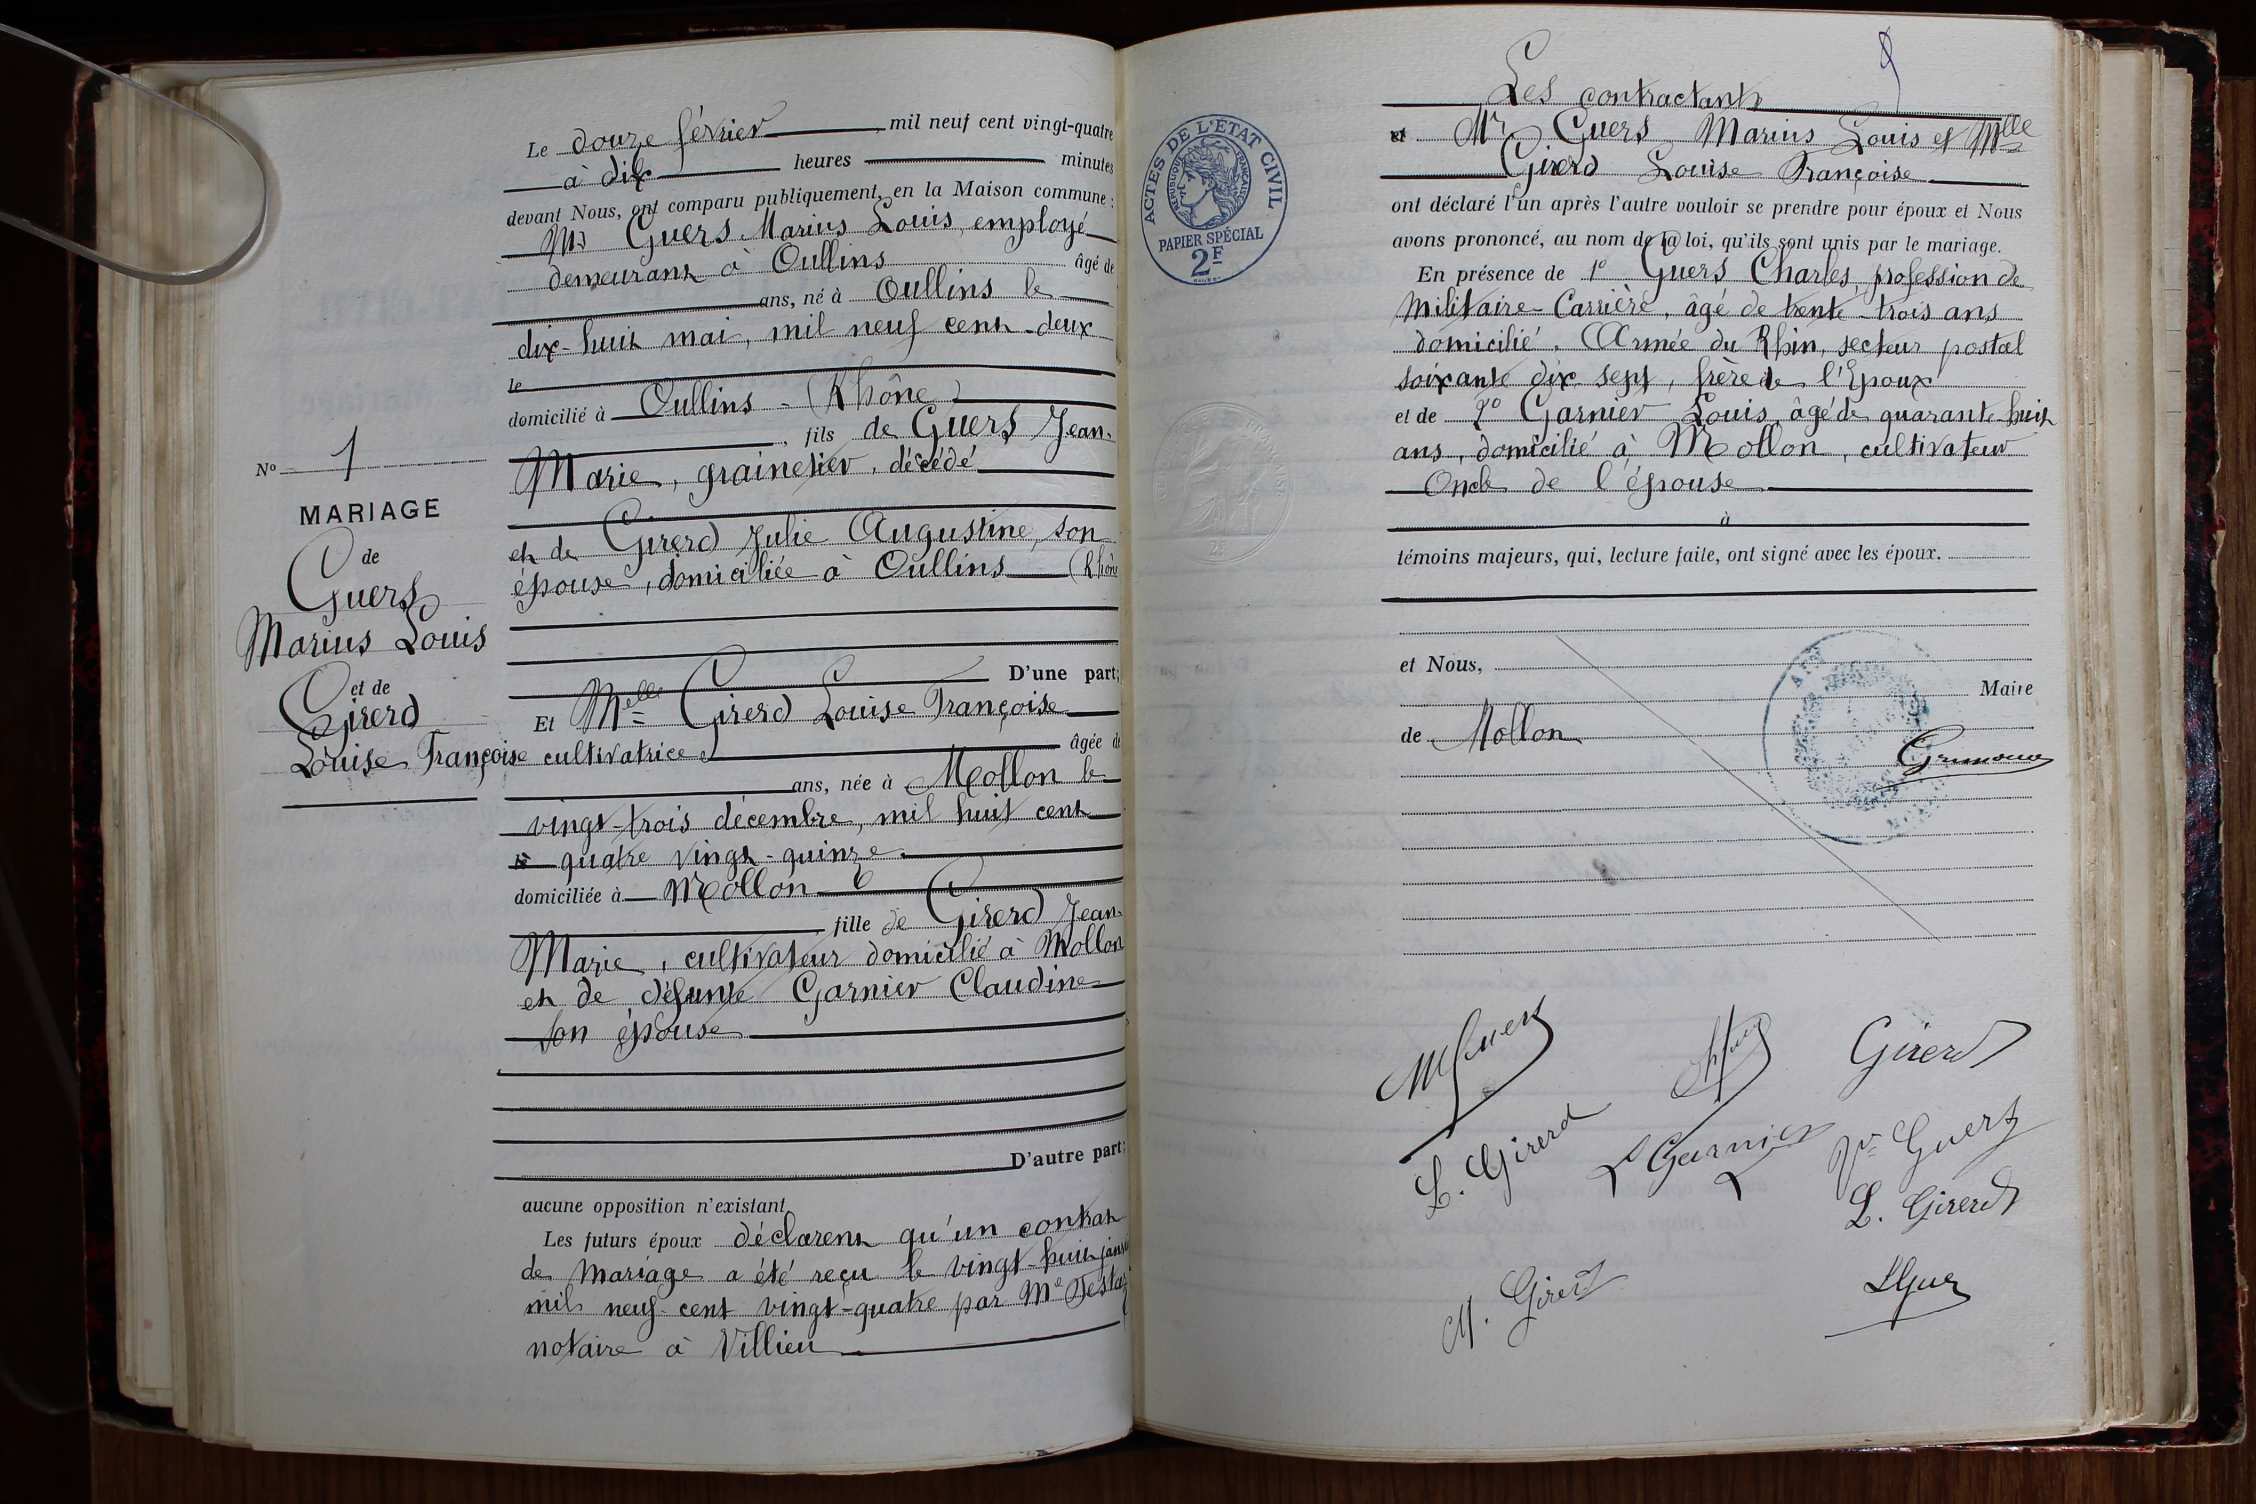 Le douze février, mil neuf cent vingt-quatre
à dix heures minutes
devant Nous, ont comparu publiquement, en la Maison commune :
Mr Guers Marius Louis, employé
demeurant à Oullins âgé de
ans, né à Oullins le
dix-huit mai, mil neuf cent-deux
le
domicilié à Oullins - (Rhône)
, fils de Guers Jean-
Marie, grainetier, décédé
et de Girerd Julie Augustine, son
épouse, domiciliée à Oullins (Rhône
D'une part;
Et Melle Girerd Louise Françoise
cultivatrice âgée de
ans, née à Mollon le
vingt-trois décembre, mil huit cent
le quatre vingt-quinze
domiciliée à Mollon
, fille de Girerd Jean-
Marie, cultivateur domicilié à Mollon
et de défunte Garnier Claudine
son épouse
D'autre part;
aucune opposition n'existant
Les futurs époux déclarent qu'un contrat
de mariage a été reçu le vingt-huit janvier
mil neuf-cent vingt-quatre par Me
notaire à Villieu
No 1
MARIAGE
de
Guers
Marius Louis
et de
Girerd
Louise Françoise
ACTES DE L'ÉTAT CIVIL
RÉPUBLIQUE FRANÇAISE
PAPIER SPÉCIAL
2F
Les contractants
et Mr Guers Marius Louis et Mlle
Girerd Louise Françoise
ont déclaré l'un après l'autre vouloir se prendre pour époux et Nous
avons prononcé, au nom de la loi, qu'ils sont unis par le mariage.
En présence de 1° Guers Charles, profession de
Militaire-Carrière, âgé de trente-trois ans
domicilié. Armée du Rhin, secteur postal
soixante dix sept, frère de l'Epoux
et de 2° Garnier Louis âgé de quarante-huit
ans, domicilié à Mollon, cultivateur
Oncle de l'épouse
à
témoins majeurs, qui, lecture faite, ont signé avec les époux.
et Nous,
Maire
de Mollon
AIN
MGuers
Girerd
L. Girerd
L Garnier
Ve Guers
L. Girerd
M. Girerd